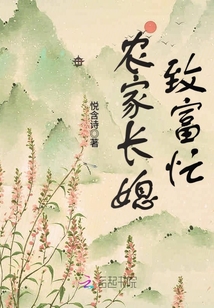 农家长媳
致富忙
悦含诗◎著
云起书院